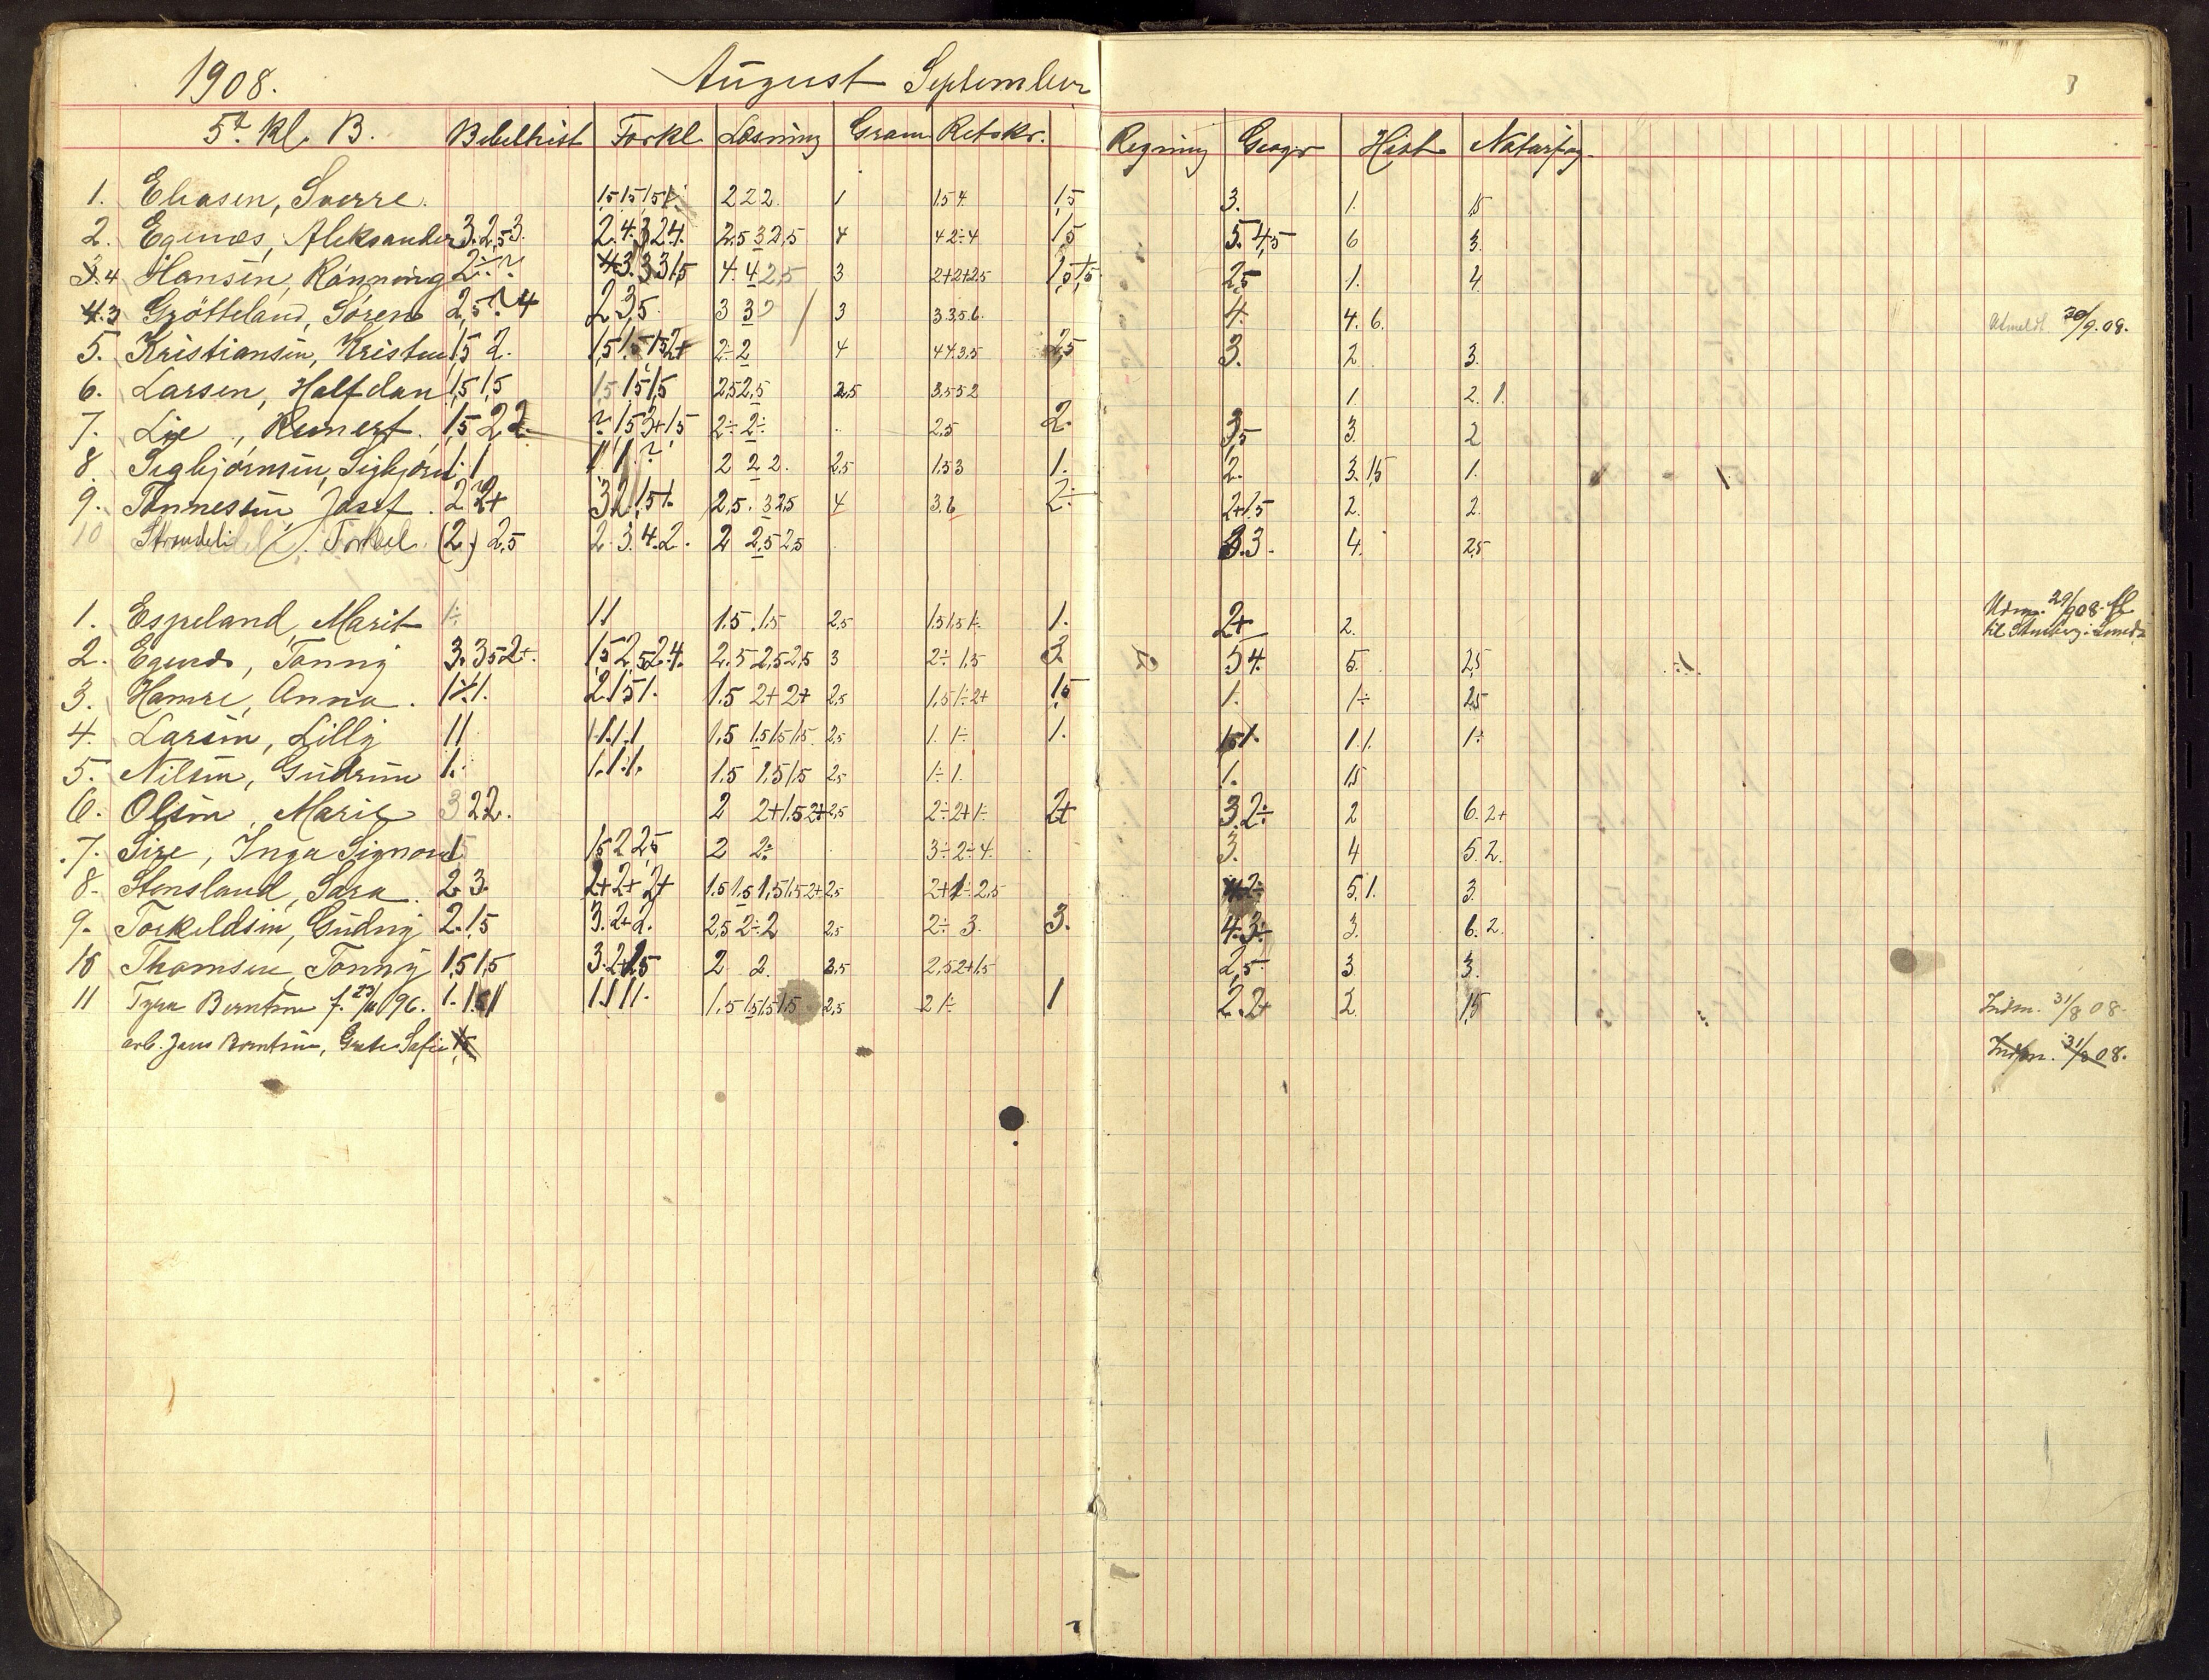 1908. August September
5te Kl. B. Bibelhist Forkl Læsning Gram Retskr. Regning Geogr Hist Naturfag
1. Eliasen, Sverre. 1,5 1,5 1,5 1÷ 2 2 2. 1 1.5 4. 1,5 3. 1. 1,5
2. Egenæs, Aleksander 3. 2,5 3. 2.4.3 2.4. 2.5 3 2,5 4 4 2÷4 1,5 5. 4,5 6 3.
3.4 Hansen, Rönning 2÷.? 4 3. 3 3 1.5 4. 4 2,5 3 2+2+2.5 1,5 1,5 2,5 1. 4.
4.3 Grötteland, Sören 2,5 ? 4 2 3,5. 3 3 3 3.3.5 6. 4. 4. 6. Utmeldt 30/9. 08.
5. Kristiansen, Kristen 1,5 2. 1,5 1.5 1.5 2+ 2÷ 2 4 4 4.3.5 2,5 3. 2 3.
6. Larsen, Halfdan 1,5 1,5 1,5 1,5 1,5 2,5 2,5 2.5 3.5 5 2 1. 2. 1.
7. Lie, Reinert. 1,5 2 2. ? 1.5 3+ 1,5 2÷ 2÷ 2.5 2. 3,5 3. 2
8. Sigbjörnsen, Sigbjörn 1. 1 1. 1. ? 2 2 2. 2.5 1.5 3 1. 2. 3. 1,5 1.
9. Tönnessen, Josef. 2 2+ 3 2 1,5 1. 2,5. 3 2,5 4 3.6 2÷ 2+1.5 2. 2.
10 Torkel. (2.) 2,5 2. 3. 4. 2. 2 2,5 2,5 3.3. 4. 2,5
1. Espeland, Marit 1÷ 1 1 1.5 1.5 2,5 1.5 1.5 1÷ 1. 2+ 2. 29/9 08
2. Egenæs, Tonny 3. 3,5 2+. 1,5 2,5 2.4. 2.5 2,5 2,5 3 2÷ 1.5 3. 5 4. 5. 2,5
3. Hamre, Anna. 1.÷.1. 2 1,5 1. 1.5 2+ 2+ 2,5 1,5 1÷2+ 1,5 1. 1÷ 2,5
4. Larsen, Lilly 1 1 1.1.1.1 1,5 1,5 1,5 1,5 2,5 1. 1÷ 1. 1,5 1. 1.1. 1÷
5. Nilsen, Gudrun 1. 1.1.1. 1.5 1.5 1.5 2,5 1÷ 1. 1. 1,5
6. Olsen, Marie 3 2 2. 2 2+ 1.5 2+ 2,5 2÷2+1÷ 2+ 3.2÷ 2 6. 2+
7. Sire, Inga Signora 1,5 1,5 2 2,5 2 2÷ 3÷2÷4. 3. 4 5.2.
8. Stensland, Sara. 2.3. 2+ 2+ 2+ 1.5 1,5 1,5 1.5 2+ 2,5 2+ 1÷ 2.5 4 2÷ 5.1. 3.
9. Torkildsen, Gudny 2.1,5 3. 2+ 2. 2,5 2÷2 2,5 2÷ 3. 3. 4.3÷ 3. 6. 2.
10 Thomsen, Tonny 1,5 1,5 3. 2+ 1,5 2 2. 3,5 2,5 2+1.5 2,5 3. 3.
11 Tyra Berntsen f. 23/11 96. 1. 1.5 1 1.1.1 1. 1.5 1,5 1,5 1.5 2,5 2 1÷ 1 2.2+ 2. 1,5 Indm. 31/8 08.
arb. Jens Berntsen, Indm. 31/8 08.